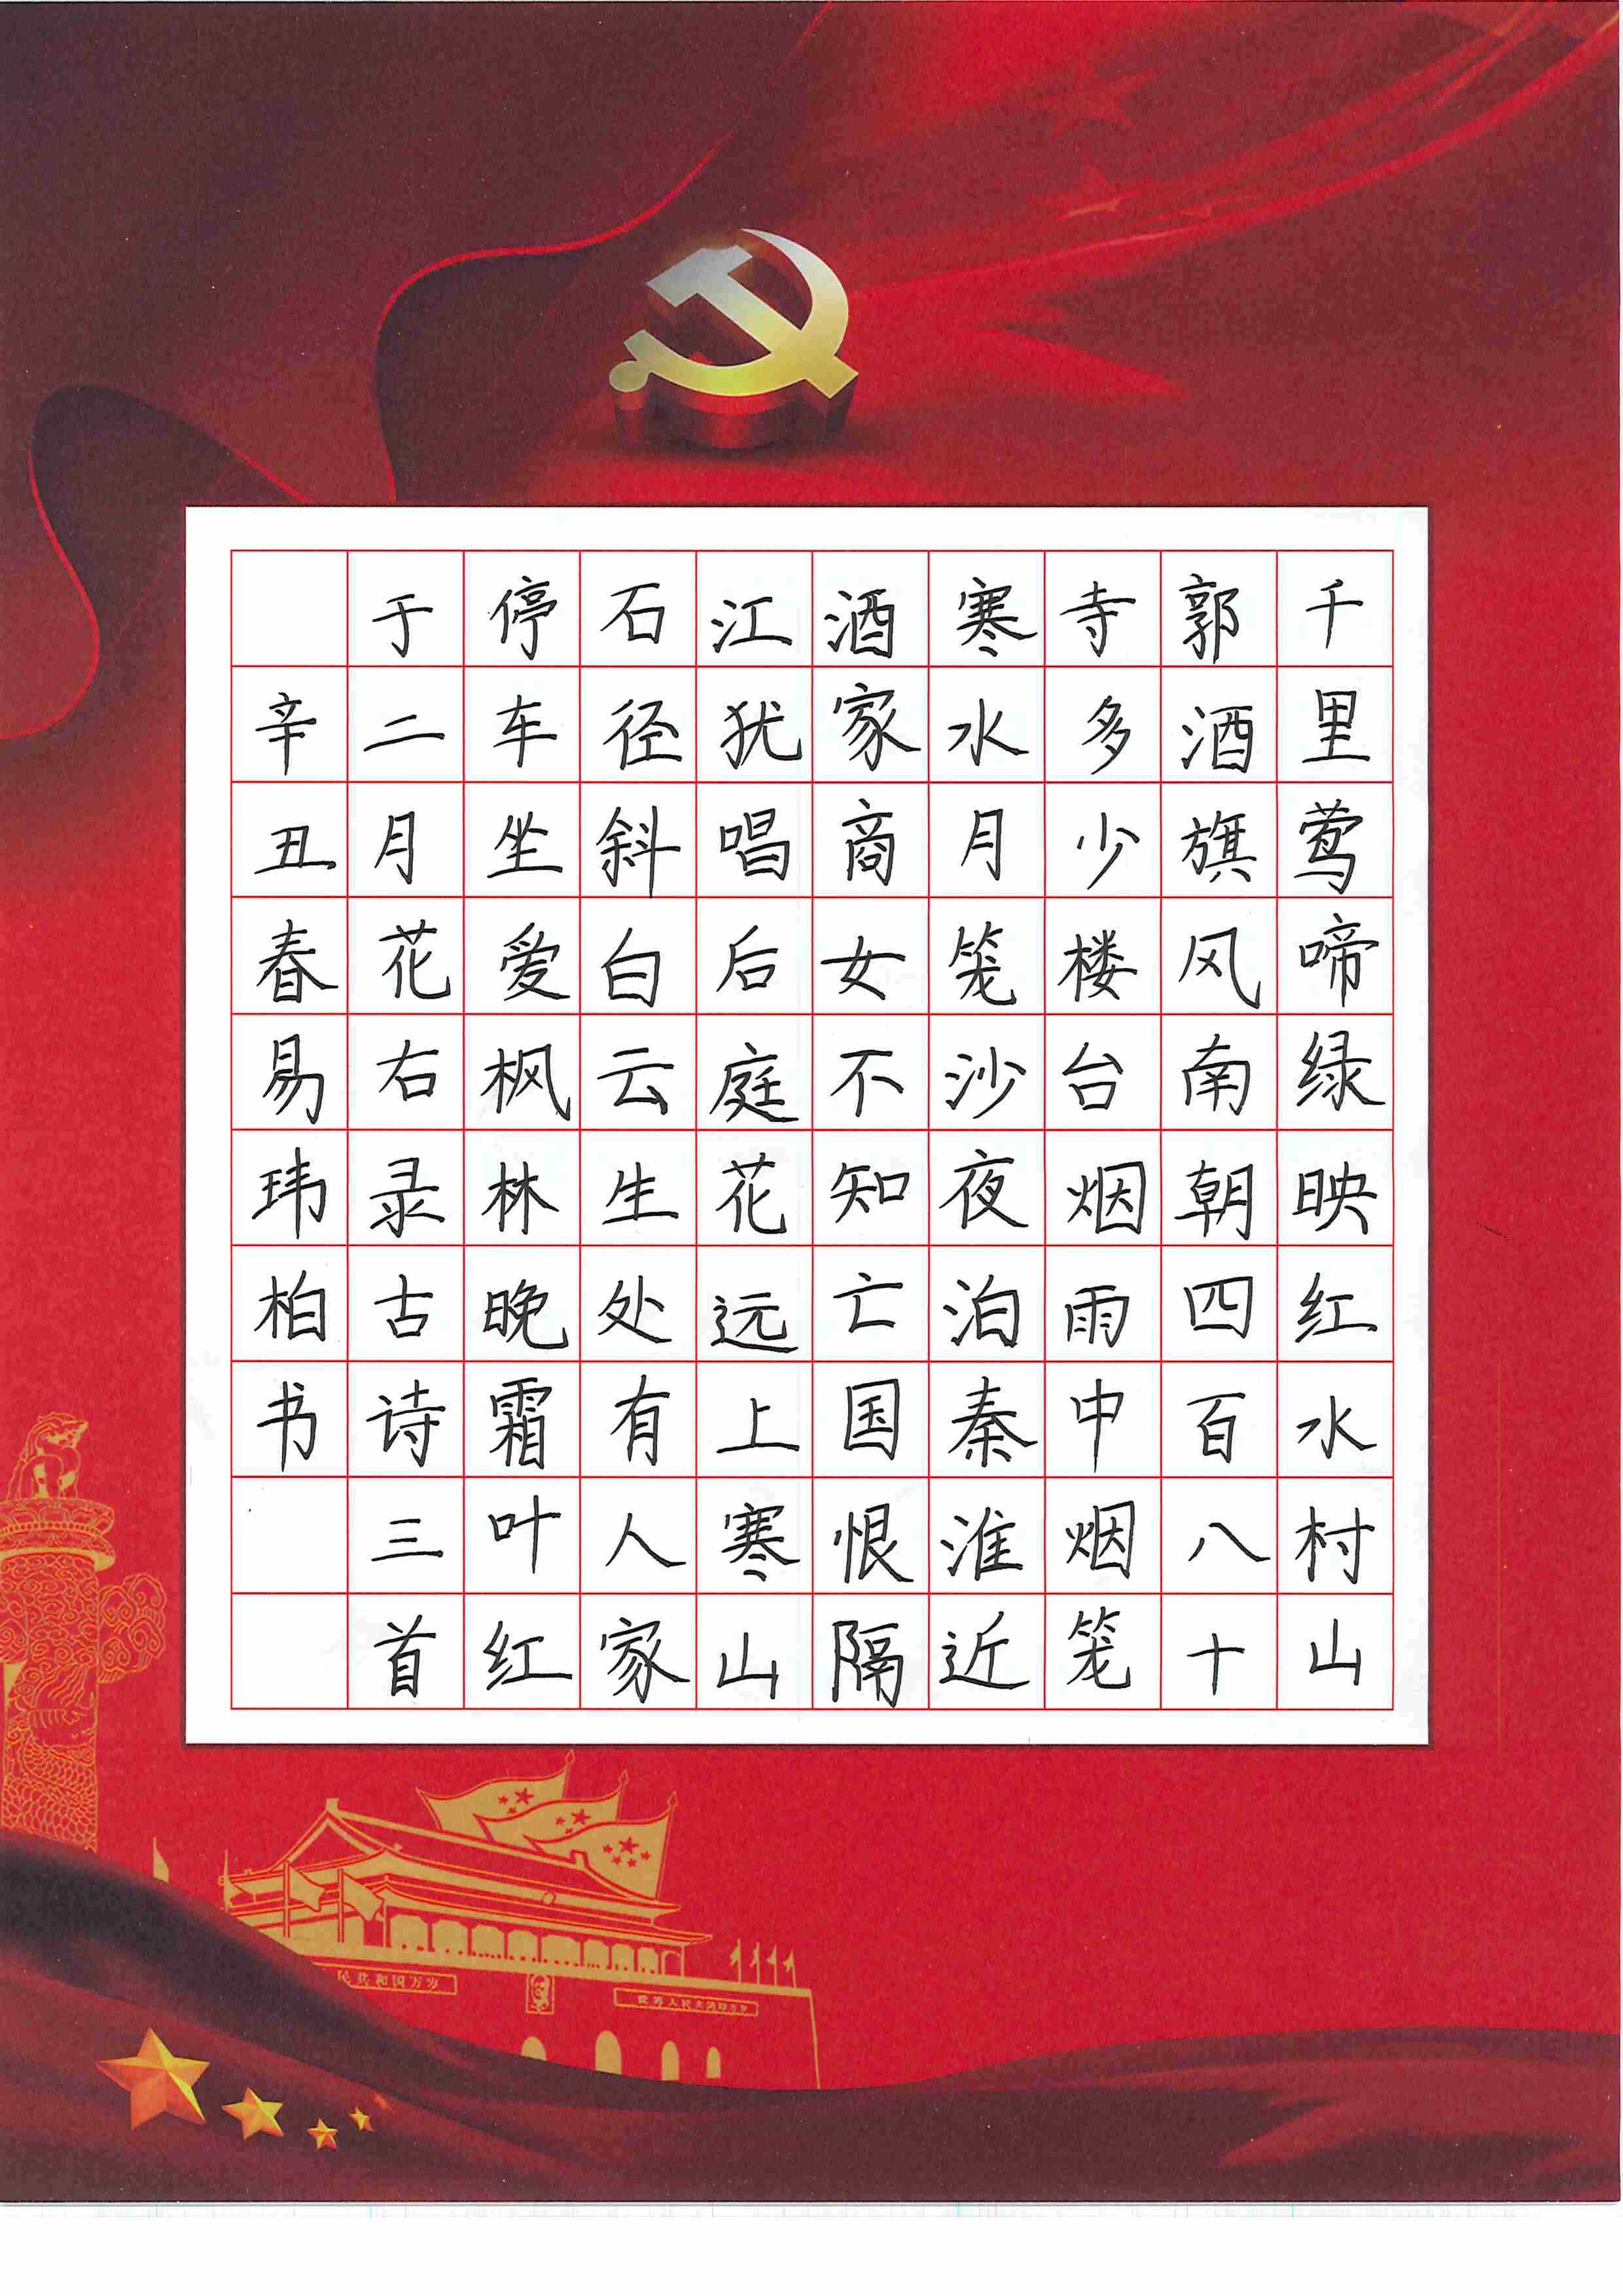 千里莺啼绿映红水村山
郭酒旗风南朝四百八十
寺多少楼台烟雨中烟笼
寒水月笼沙夜泊秦淮近
酒家商女不知亡国恨隔
江犹唱后庭花远上寒山
石径斜白云生处有人家
停车坐爱枫林晚霜叶红
于二月花右录古诗三首
辛丑春易玮柏书
民共和国万岁
世界人民大团结万岁